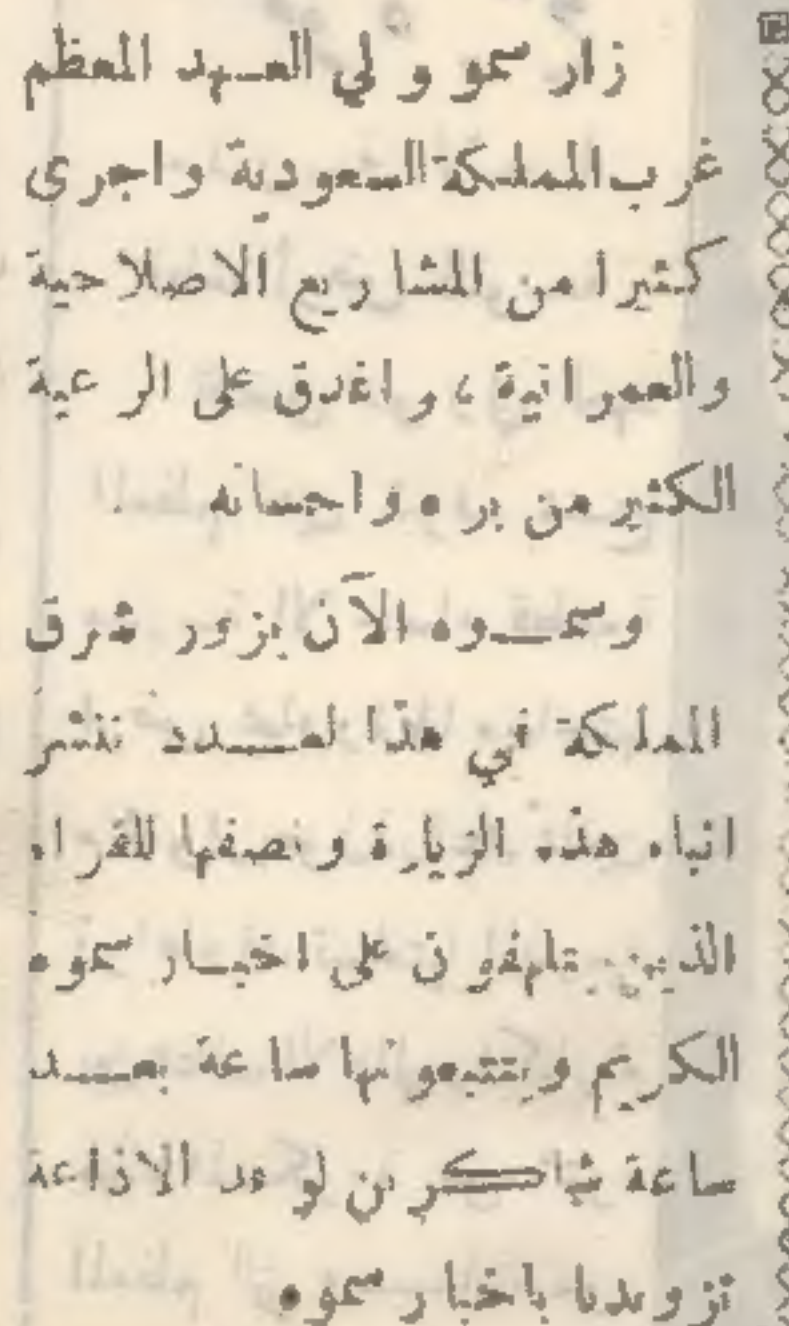 زار سمو ولي العهد المعظم
غرب المملكة السعودية واجرى
كثيرا من المشاريع الاصلاحية
والعمرانية ، واغدق على الرعية
الكثير من بره واحسانه
وسمـوه الآن يزور شرق
المملكة في هذا لعـدد ننشر
انباء هذه الزيارة ونصفها للقراء
الذين يتلهفون على اخبـار سموه
الكريم ويتتبعونها ساعة بعـد
ساعة شاكرين لوفد الاذاعة
تزويدنا باخبار سموه